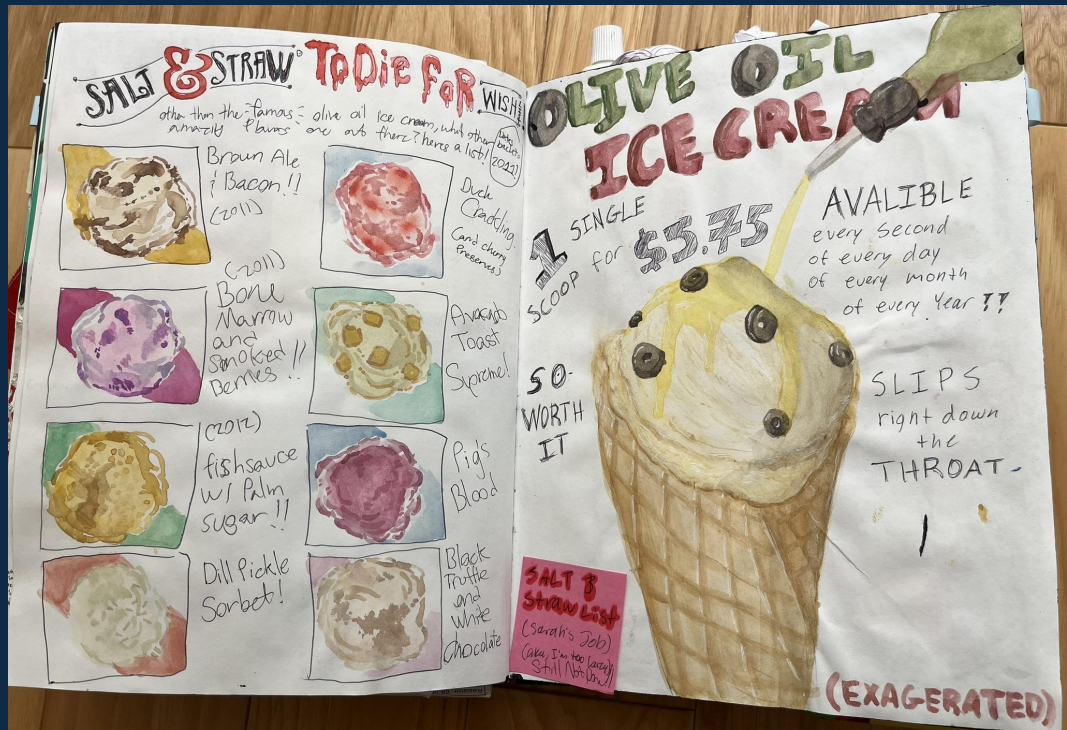 SALT & STRAW TO DIE FOR WISH
other than the "famous" olive oil ice cream, what other
amazing flavors are out there? here's a list!
2011
Brown Ale
& Bacon!!
(2011)
Duck
Crackling
(and cherry
Preserves)
(2011)
Bone
Marrow
and
Smoked
Berries !!
Avocado
Toast
Supreme!
(2012)
fishsauce
w/ Palm
sugar!!
Pig's
Blood
Dill Pickle
Sorbet!
Black
Truffle
and
White
Chocolate
OLIVE OIL
ICE CREAM
1 SINGLE
SCOOP for $5.75
AVALIBLE
every second
of every day
of every month
of every year !!
SO
WORTH
IT
SLIPS
right down
the
THROAT
SALT &
Straw List
(Sarah's Job)
(aka, I'm too lazy)
Still Not Done
(EXAGERATED)